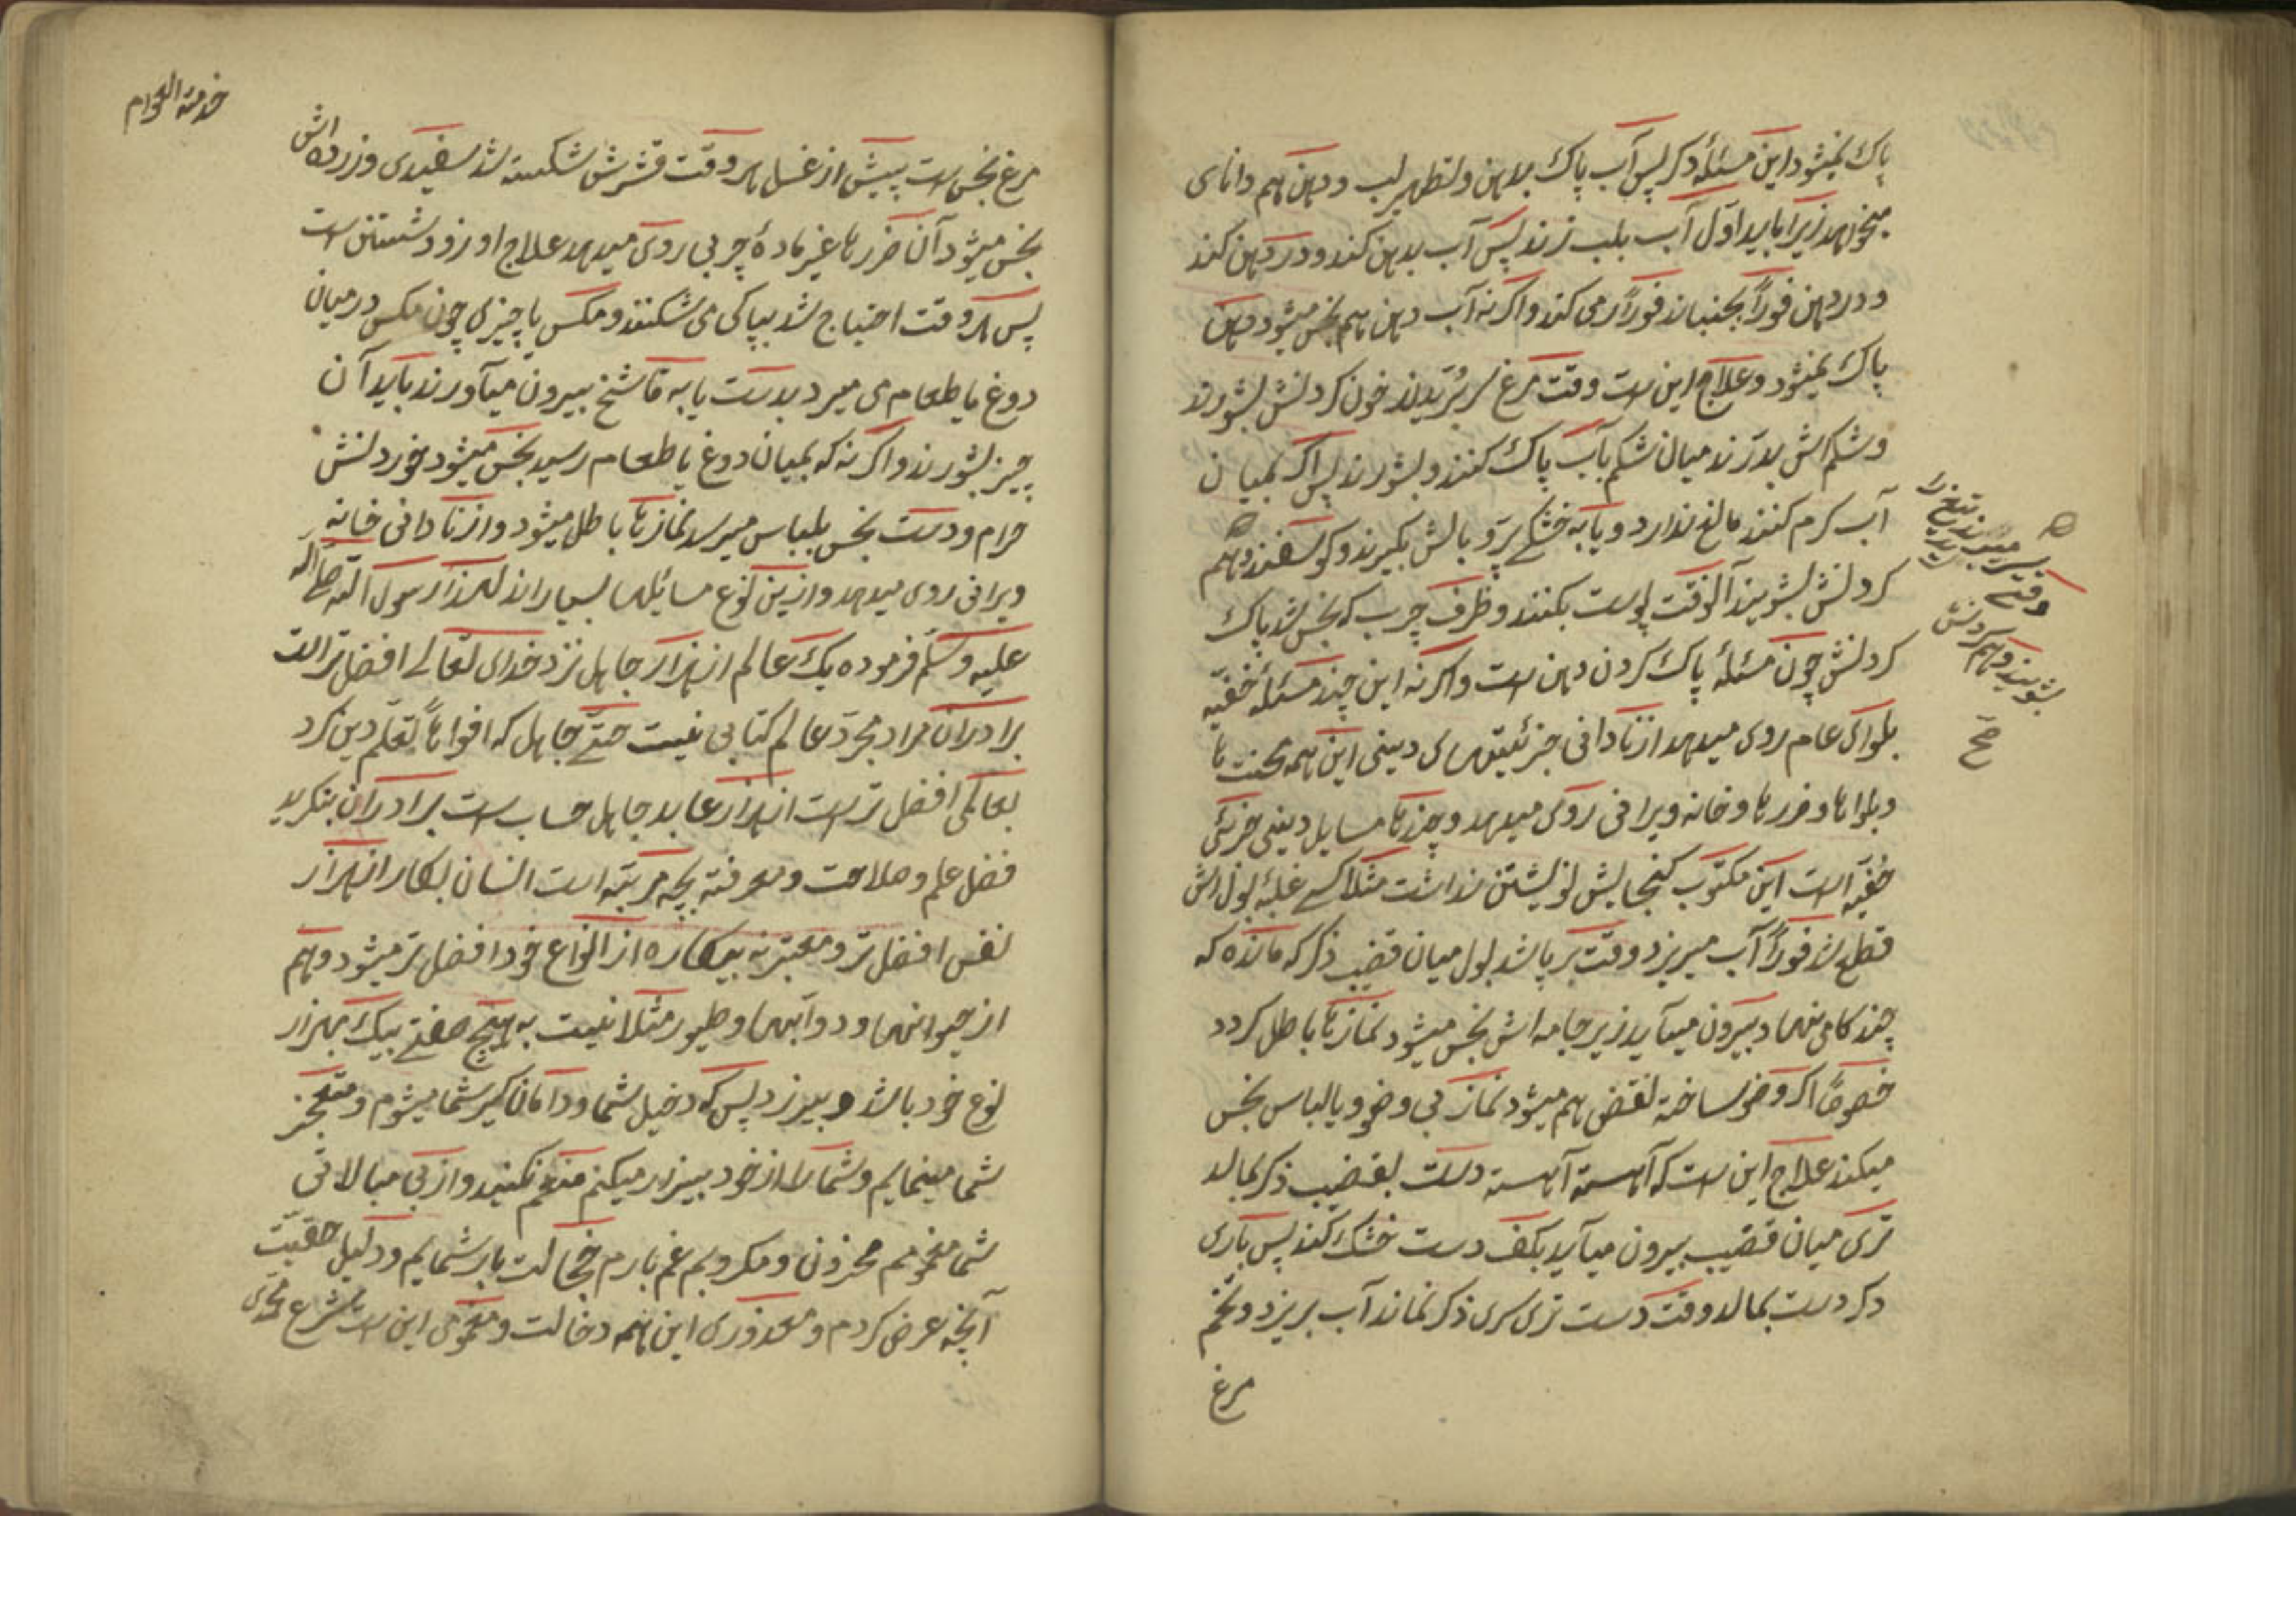 پاک نمیشود این مسئله دکر پس آب پاک بدهن و تطهیر لب و دهن هم دانای
میخواهد زیرا باید اوّل آب بلب زند پس آب بدهن کند و در دهن کند
و در دهن فوراً بجنباند فوراً رمی کند و اکر نه آب دهن هم نجس میشود دهن
پاک نمیشود و علاج این است وقت مرغ سر بُریدند خون کردنش بشورند
و شکم اش بدرند میان شکم بآب پاک کنند و بشورند پس اکر بمیان
آب کرم کنند مانع ندارد و یا به خشکی پر و بالش بکیرند و کوسفند هم
کردنش بشویند آنوقت پوست بکنند و ظرف چرب که نجس شد پاک
کردنش چون مسئلهٔ پاک کردن دهن است و اکر نه این چند مسئله خفیّه
بلوای عام روی میدهد از نادانی جزئیتهای دینی این همه محنت ها
و بلواها و ضررها و خانه ویرانی روی میدهد و چندها مسایل دینی جزئی
خفیّه است این مکتوب کنجایش نویشتن نداشت مثلا کسی غلبهٔ بول اش
قطع شد فوراً آب میریزد وقت بر پا شد بول میان قضیب ذکر که مانده که
چند کامی نهاد بیرون میآید زیر جامه اش نجس میشود نمازها باطل کردد
خصوصاً اکر وضو ساخته نقض هم میشود نماز بی وضو و یا لباس نجس
میکند علاج این است که آهسته آهسته دست بقضیب ذکر بمالد
تری میان قضیب بیرون میآید بکف دست خشک کند پس باری
دکر دست بمالد وقت دست تری سری ذکر نماند آب بریزد و تخم
مرغ
وقتی سر میبرند تیغ را
بشویند و هم کردنش
صح
خدمة العوام
مرغ نجس است پیش از غسل هر وقت قشرش شکسته شد سفیدی و زرده اش
نجس میشود آن ضررها غیر مادهٔ چربی روی میدهد علاج او زود شستن است
پس هر وقت احتیاج شد بپاکی می شکنند و مکس یا چیزی چون مکس در میان
دوغ یا طعام می میرد بدست یا به قاشخ بیرون میآورند باید آن
چیز بشورند و اکر نه که بمیان دوغ یا طعام رسید نجس میشود خوردنش
حرام و دست نجس بلباس میرسد نمازها باطل میشود و از نادانی خانه
ویرانی روی میدهد و ازین نوع مسائلها بسیار اند لهذا رسول الله صلی الله
علیه وسلم فرموده یک عالم از هزار جاهل نزد خدای تعالی افضل تر است
برادران مراد مجرّد عالم کتابی نیست حتّی جاهل که افواهاً تعلّم دین کرد
بعاکی افضل تر است از هزار عابد جاهل حساب است برادران بنکرید
فضل علم و ملاحت و معرفته بچه مرتبه است انسان بکار از هزار
نفس افضل تر و معتبر نه بیکاره از انواع خود افضل تر میشود و هم
از حیوانها و دوآبها و طیور مثلا نیست به هیچ صفتی بیک بهزار
نوع خود باشد و بیرزد پس که دخیل شما و دامان کیر شما میشوم و متعجّز
شما مینمایم و شما را از خود بیزار میکنم متهم نکنید و از بی مبالاتی
شما مغمومم محزون و مکروبم غم بارم خجالت بار شمایم و دلیل حقیّت
آنچه عرض کردم و معذوری این همه دخالت و مغمومی این است شرع محمّدی